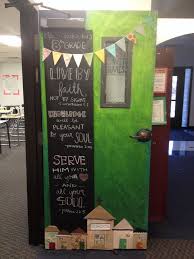 8th GRADE
LIVE BY
faith
NOT BY SIGHT
KNOWLEDGE
will be
PLEASANT
to your
SOUL
SERVE
HIM WITH
all your
and
all your
SOUL